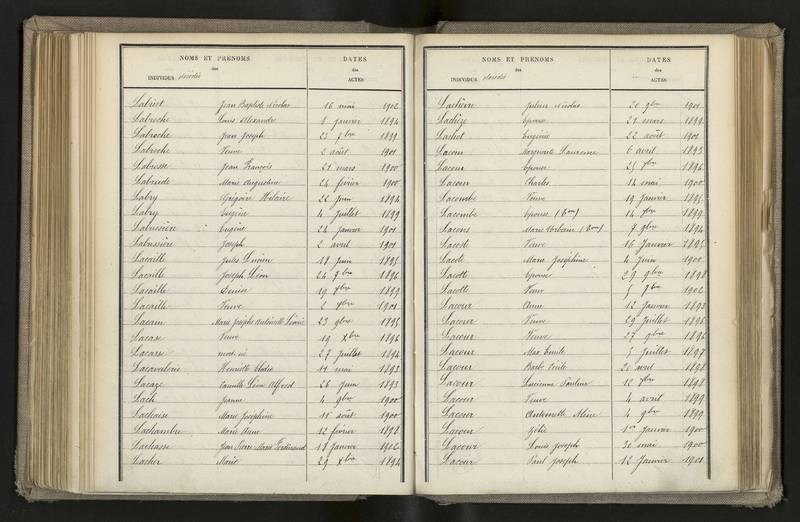 NOMS ET PRÉNOMS
des
INDIVIDUS décédés
DATES
des
ACTES
Labriet Jean Baptiste Nicolas 16 mai 1902
Labroche Louis Alexandre 8 janvier 1894
Labroche Jean Joseph 23 7bre 1899
Labroche Veuve 2 août 1901
Labrosse Jean François 21 mars 1900
Labrude Marie Augustine 24 février 1900
Labry Grégoire Hilaire 22 juin 1894
Labry Eugène 4 juillet 1899
Labussière Eugène 24 janvier 1901
Labussière Joseph 2 avril 1901
Lacaille Jules Lucien 18 juin 1895
Lacaille Joseph Léon 24 7bre 1896
Lacaille Denise 19 1899
Lacaille Veuve 2 1901
Lacam Marie Josèphe Antoinette 23 9bre 1895
Lacase Veuve 19 Xbre 1896
Lacasse mort-né 27 juillet 1894
Henriette Élodie 11 mai 1893
Lacaze Camille Léon Alfred 26 juin 1893
Lach Jeanne 4 9bre 1900
Lachaise Marie Joséphine 11 août 1900
Lachambre Marie Anne 12 février 1898
Lachasse Jean Pierre Marie Ferdinand 18 janvier 1902
Lacher Marie 29 Xbre 1894
NOMS ET PRÉNOMS
des
INDIVIDUS décédés
DATES
des
ACTES
Julien Nicolas 20 9bre 1901
Épouse 21 mars 1899
Lachot Eugénie 22 août 1901
Lacom Marguerite Laurence 6 avril 1895
Lacom Épouse 25 1896
Lacour Charles 14 mai 1900
Lacombe Veuve 19 janvier 1895
Lacombe Épouse 14 1899
Lacons Marie Urbain 7 9bre 1894
Lacoste Veuve 16 janvier 1895
Lacote Marie Joséphine 4 juin 1900
Lacotte Épouse 29 9bre 1898
Lacotte Veuve 5 1902
Lacour Anne 12 janvier 1893
Lacour Veuve 29 juillet 1896
Lacour Veuve 27 9bre 1896
Lacour Max Émile 5 juillet 1897
Lacour Barbe Cécile 20 avril 1898
Lacour Lucienne Pauline 12 1898
Lacour Veuve 4 avril 1899
Lacour Antoinette 4 9bre 1899
Lacour Zélie 1er janvier 1900
Lacour Louis Joseph 30 mai 1900
Lacour Paul Joseph 12 janvier 1901